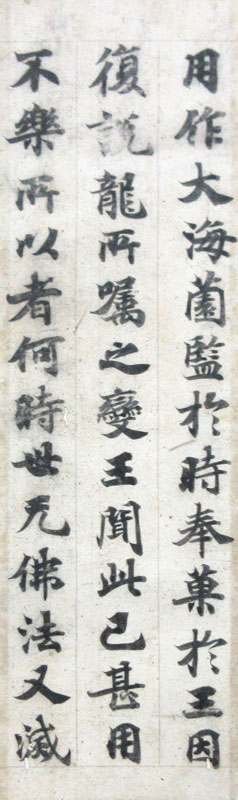 用作大海薗監於時奉菓於王因
復說龍所囑之變王聞此已甚用
不樂所以者何時世无佛法又滅